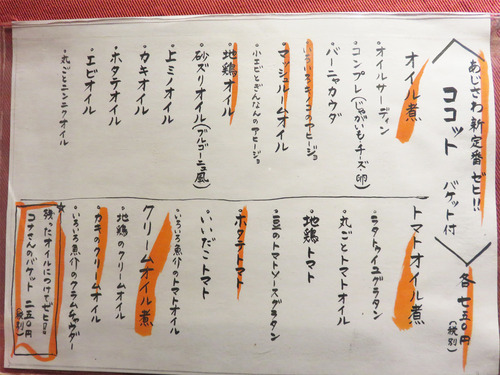 あじさわ 新定番 ゼヒ!!
ココット バケット付
各 七五〇円
(税別)
オイル煮
・オイルサーディン
・コンプレ(じゃがいも・チーズ・卵)
・バーニャカウダ
・いろいろキノコのアヒージョ
・マッシュルームオイル
・小エビとぎんなんのアヒージョ
・地鶏オイル
・砂ズリオイル(ブルゴーニュ風)
・上ミノオイル
・カキオイル
・ホタテオイル
・エビオイル
・丸ごとニンニクオイル
トマトオイル煮
・ラタトゥイユグラタン
・丸ごとトマトオイル
・地鶏トマト
・豆のトマトソースグラタン
・ホタテトマト
・いいだこトマト
・いろいろ魚介のトマトオイル
クリームオイル煮
・地鶏のクリームオイル
・カキのクリームオイル
・いろいろ魚介のクラムチャウダー
☆残ったオイルにつけてゼヒ!!
コナさんのバケット 二五〇円
(税別)